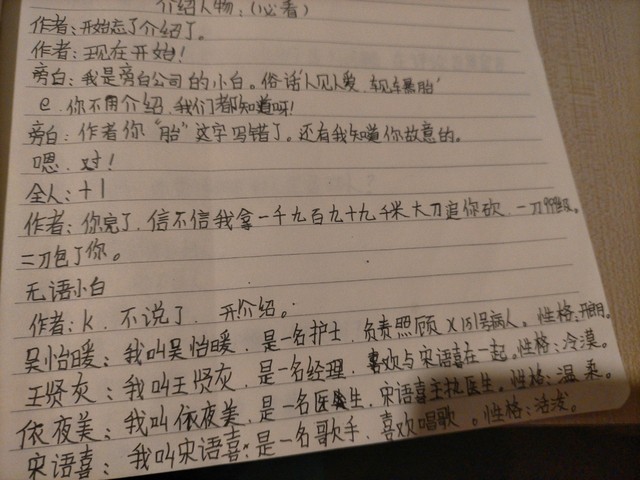 介绍人物:(必看)
作者:开始忘了介绍了。
作者:现在开始!
旁白:我是旁白公司的小白。俗话"人见人爱、车见车暴胎"
e、你不用介绍、我们都知道呀!
旁白:作者你"胎"这字写错了。还有我知道你故意的。
嗯、对!
全人:+1
作者:你完了、信不信我拿一千九百九十九千米大刀追你砍、一刀
二刀包了你。
无语小白
作者:k、不说了、开介绍。
吴怡暖:我叫吴怡暖、是一名护士、负责照顾X151号病人。性格:开朗。
王贤灰:我叫王贤灰、是一名经理、喜欢与宋语喜在一起。性格:冷漠。
依夜美:我叫依夜美、是一名医生、宋语喜主社医生。性格:温柔。
宋语喜:我叫宋语喜:是一名歌手、喜欢唱歌。性格:活泼。